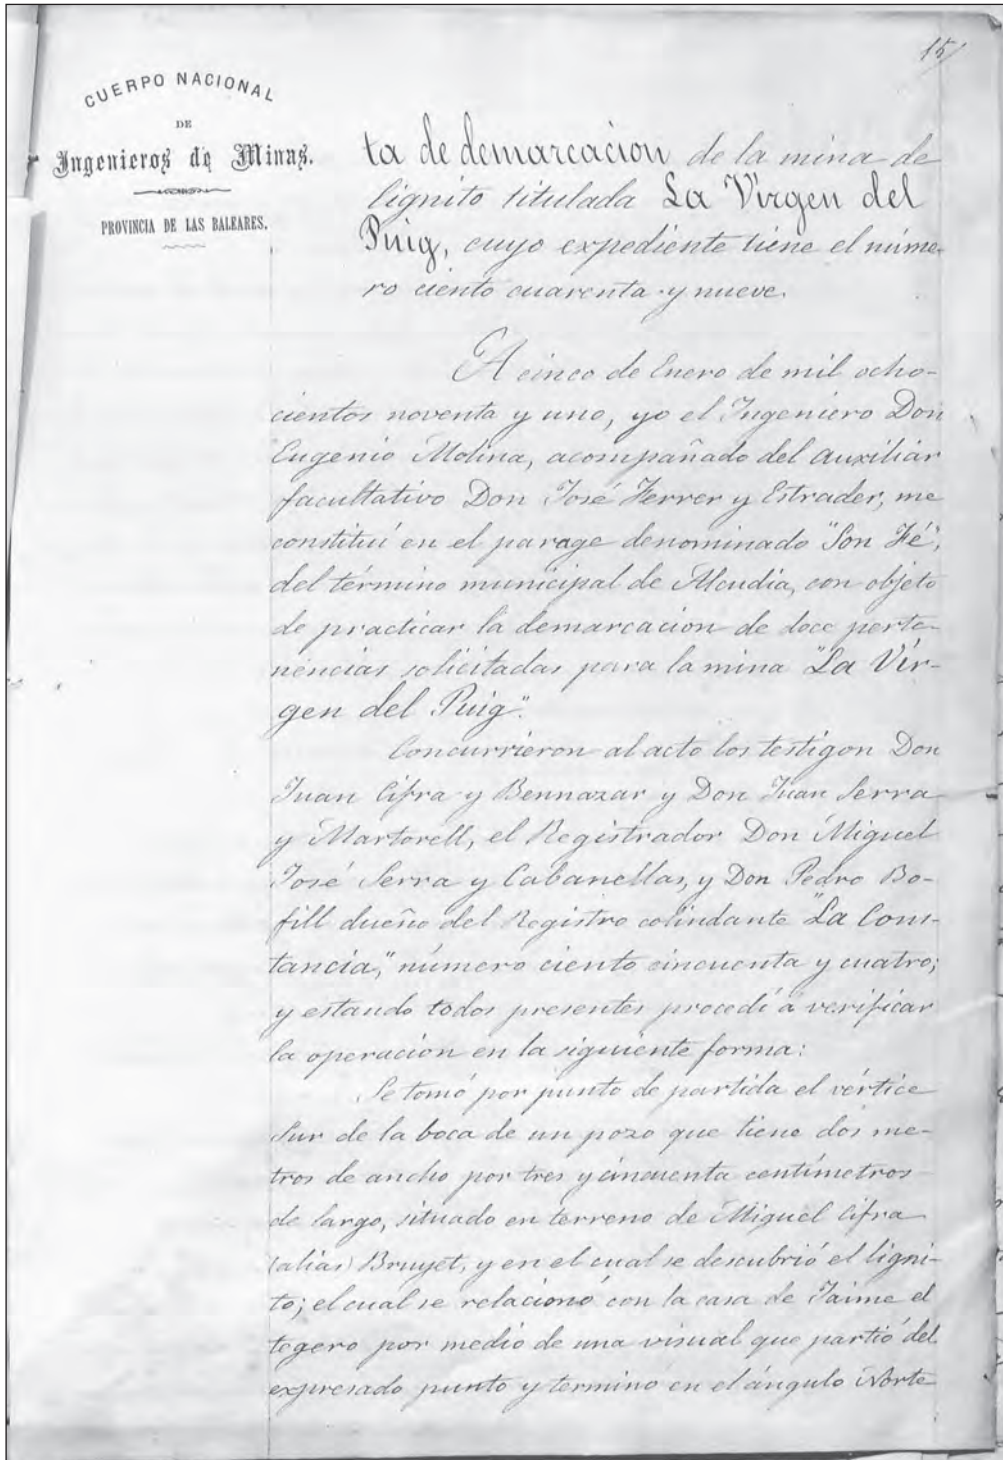 15/
CUERPO NACIONAL
DE
Ingenieros de Minas.
PROVINCIA DE LAS BALEARES.
ta de demarcacion de la mina de
lignito titulada La Virgen del
Puig, cuyo expediente tiene el núme-
ro ciento cuarenta y nueve.
A cinco de Enero de mil ocho-
cientos noventa y uno, yo el Ingeniero Don
Eugenio Molina, acompañado del auxiliar
facultativo Don José Ferrer y Estrader, me
constituí en el parage denominado "Son Fé",
del término municipal de Alcudia, con objeto
de practicar la demarcacion de doce perte-
nencias solicitadas para la mina "La Vir-
gen del Puig".
Concurrieron al acto los testigon Don
Juan Cifra y Bennazar y Don Juan Serra
y Martorell, el Registrador Don Miguel
José Serra y Cabanellas, y Don Pedro Bo-
fill dueño del Registro colindante "La Cons-
tancia," número ciento cincuenta y cuatro;
y estando todos presentes procedí á verificar
la operacion en la siguiente forma:
Se tomó por punto de partida el vértice
Sur de la boca de un pozo que tiene dos me-
tros de ancho por tres y cincuenta centímetros
de largo, situado en terreno de Miguel Cifra
(alias) Bruyet, y en el cual se descubrió el ligni-
to; el cual se relacionó con la casa de Jaime el
tegero por medio de una visual que partió del
expresado punto y termino en el ángulo Norte